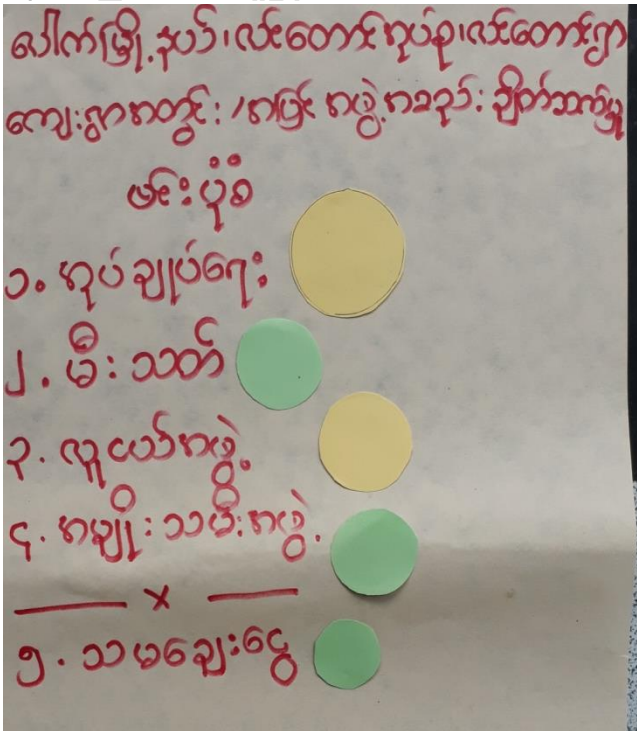 ပေါက်မြို့နယ်၊လင်းတောင်းအုပ်စု၊လင်းတောင်းရွာ
ကျေးရွာအတွင်း/အပြင် အဖွဲ့အစည်းချိတ်ဆက်မှု
ဗင်းပုံစံ
၁. အုပ်ချုပ်ရေး
၂. မီးသတ်
၃. လူငယ်အဖွဲ့
၄. အမျိုးသမီးအဖွဲ့
x
၅. သမချေးငွေ